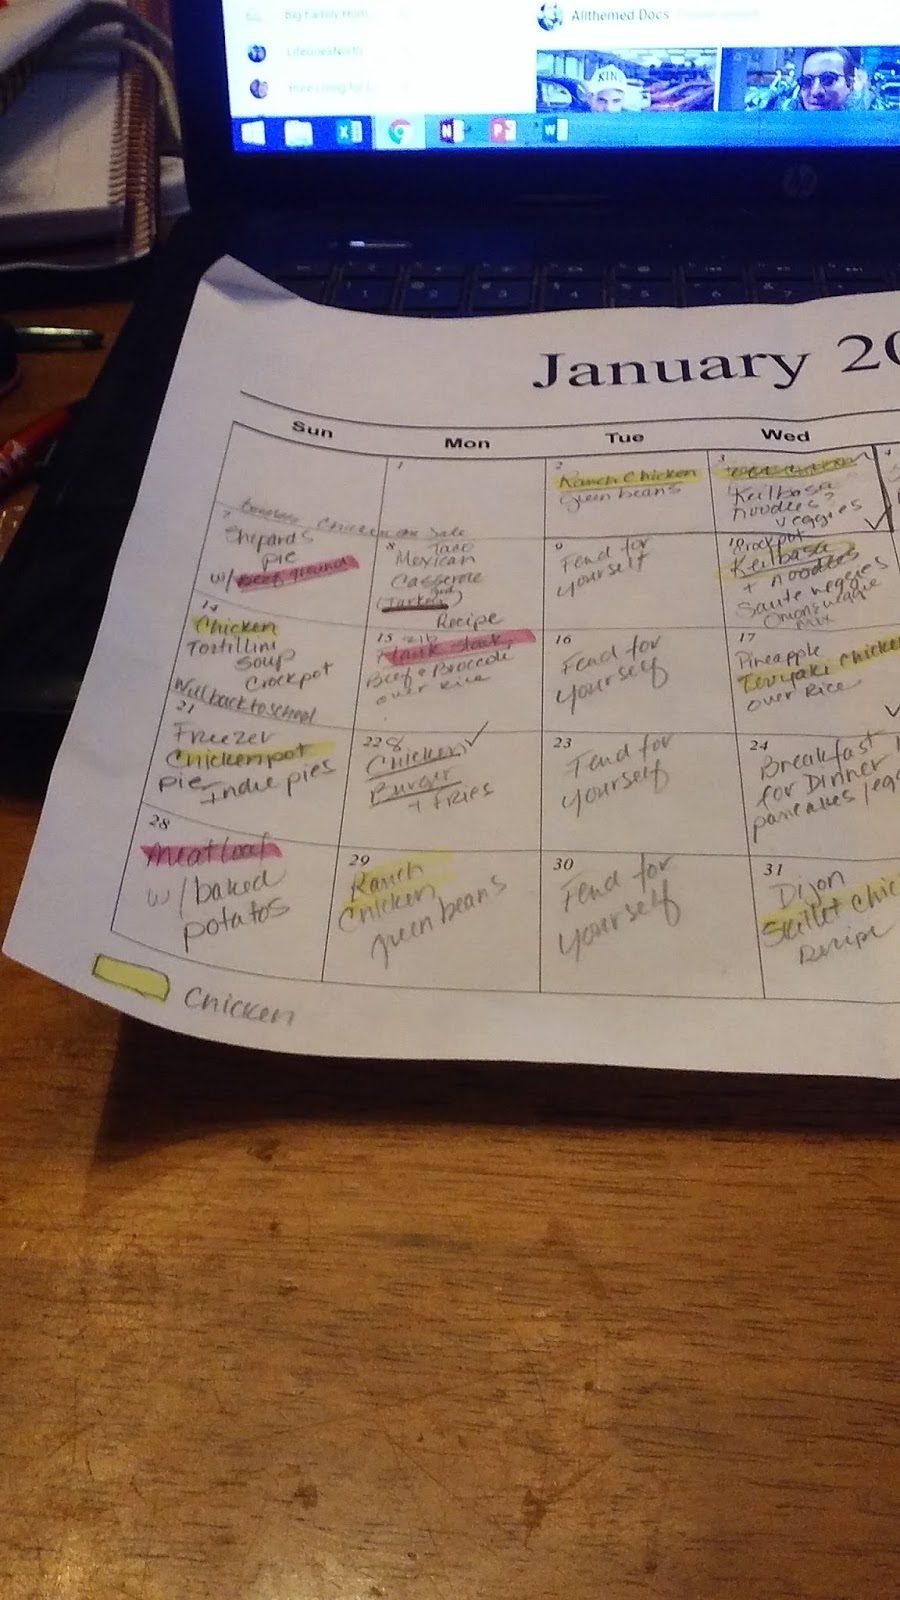 Big Family Hom...
LifeGoesNorth
Allthemed Docs
KING
hp
January 20
Sun
Mon
Tue
Wed
1
2
Ranch Chicken
green beans
3
Keilbasa
noodles?
veggies
4
Chicken on Sale
7
Shepards
pie
w/ Beef ground
8
Taco
Mexican
Casserole
Recipe
9
Fend for
yourself
10
Crockpot
Keilbasa
+ noodles
Saute veggies
Onions veggie
mix
14
Chicken
Tortillini
Soup
Crockpot
Will back to school
15
Beef + Broccoli
over Rice
16
Fend for
yourself
17
Pineapple
Teryaki Chicken
over Rice
21
Freezer
Chicken pot
pie Indie pies
22
8
Chicken
Burger
+ Fries
23
Fend for
yourself
24
Breakfast
for Dinner
pancakes/
28
Meatloaf
w/ baked
potatos
29
Ranch
Chicken
green beans
30
Fend for
yourself
31
Dijon
Skillet Chic
Recipe
Chicken